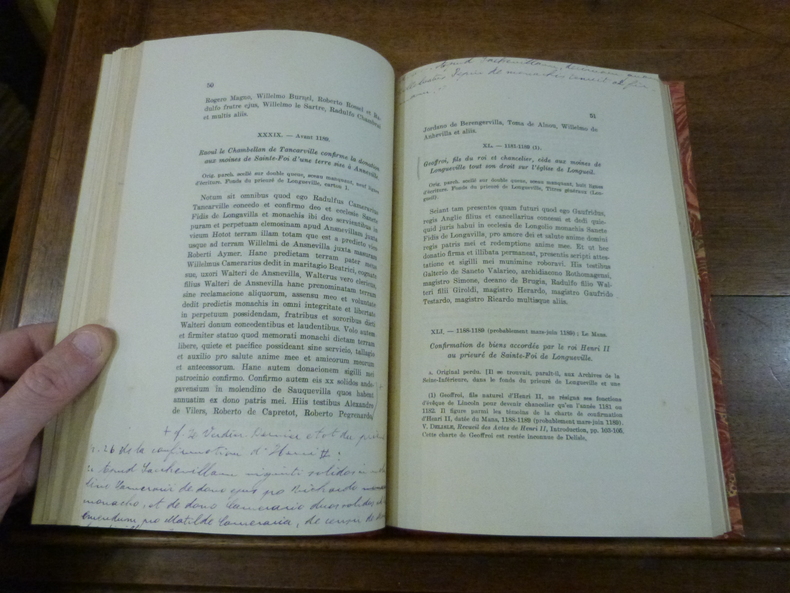 50
Rogero Magno, Willelmo Burnel, Roberto Rossel et Ra-
dulfo fratre ejus, Willelmo le Sartre, Radulfo
et multis aliis.
XXXIX. — Avant 1189.
Raoul le Chambellan de Tancarville confirme la donation
aux moines de Sainte-Foi d'une terre sise à Anneville.
Orig. parch. scellé sur double queue, sceau manquant, neuf lignes
d'écriture. Fonds du prieuré de Longueville, carton 1.
Notum sit omnibus quod ego Radulfus Camerarius
Tancarville concedo et confirmo deo et ecclesie Sancte
Fidis de Longavilla et monachis ibi deo servientibus
puram et perpetuam elemosinam apud Ansmevillam juxta
vicum Hotot terram illam totam que est a predicto vico
usque ad terram Willelmi de Ansmevilla juxta masuram
Roberti Aymer. Hanc predictam terram pater meus
Willelmus Camerarius dedit in maritagio Beatrici, cognate
sue, uxori Walteri de Ansmevilla, Walterus vero clericus,
filius Walteri de Ansmevilla hanc prenominatam terram
sine reclamacione aliquorum, assensu meo et voluntate
dedit predictis monachis in omni integritate et libertate
in perpetuum possidendam, fratribus et sororibus dicti
Walteri donum concedentibus et laudentibus. Volo autem
et firmiter statuo quod memorati monachi dictam terram
libere, quiete et pacifice possideant sine servicio, tallagio
et auxilio pro salute anime mee et amicorum meorum
et antecessorum. Hanc autem donacionem sigilli mei
patrocinio confirmo. Confirmo autem eis xx solidos ande-
gavensium in molendino de Sauquevilla quos habent
annuatim ex dono patris mei. Hiis testibus Alexandro
de Vilers, Roberto de Capretot, Roberto
de la confirmation d'Henri II :
viginti solidos in
de dono ejus pro Richardo
monacho, et de dono Camerario duos solidos
pro Matilde Cameraria, de
51
Jordano de Berengervilla, Toma de Alnou, Willelmo de
Anhevilla et aliis.
XL. — 1181-1189 (1).
Geoffroi, fils du roi et chancelier, cède aux moines de
Longueville tout son droit sur l'église de Longueil.
Orig. parch. scellé sur double queue, sceau manquant, huit lignes
d'écriture. Fonds du prieuré de Longueville, Titres généraux (Lon-
gueil).
Sciant tam presentes quam futuri quod ego Gaufridus,
regis Anglie filius et cancellarius concessi et dedi quic-
quid juris habui in ecclesia de Longolio monachis Sancte
Fidis de Longavilla, pro amore dei et salute anime domini
regis patris mei et redemptione anime mee. Et ut hec
donatio firma et illibata permaneat, presentis scripti attes-
tatione et sigilli mei munimine roboravi. His testibus
Galterio de Sancto Valarico, archidiacono Rothomagensi,
magistro Simone, decano de Brugia, Radulfo filio Wal-
teri filii Giroldi, magistro Herardo, magistro Gaufrido
Testardo, magistro Ricardo multisque aliis.
XLI. — 1188-1189 (probablement mars-juin 1189) ; Le Mans.
Confirmation de biens accordés par le roi Henri II
au prieuré de Sainte-Foi de Longueville.
a. Original perdu. [Il se trouvait, paraît-il, aux Archives de la
Seine-Inférieure, dans le fonds du prieuré de Longueville et une
(1) Geoffroi, fils naturel d'Henri II, se résigna ses fonctions
d'évêque de Lincoln pour devenir chancelier qu'en l'année 1181 ou
1182. Il figure parmi les témoins de la charte de confirmation
d'Henri II, datée du Mans, 1188-1189 (probablement mars-juin 1189).
V. DELISLE, Recueil des Actes de Henri II, Introduction, pp. 103-105.
Cette charte de Geoffroi est restée inconnue de Delisle.